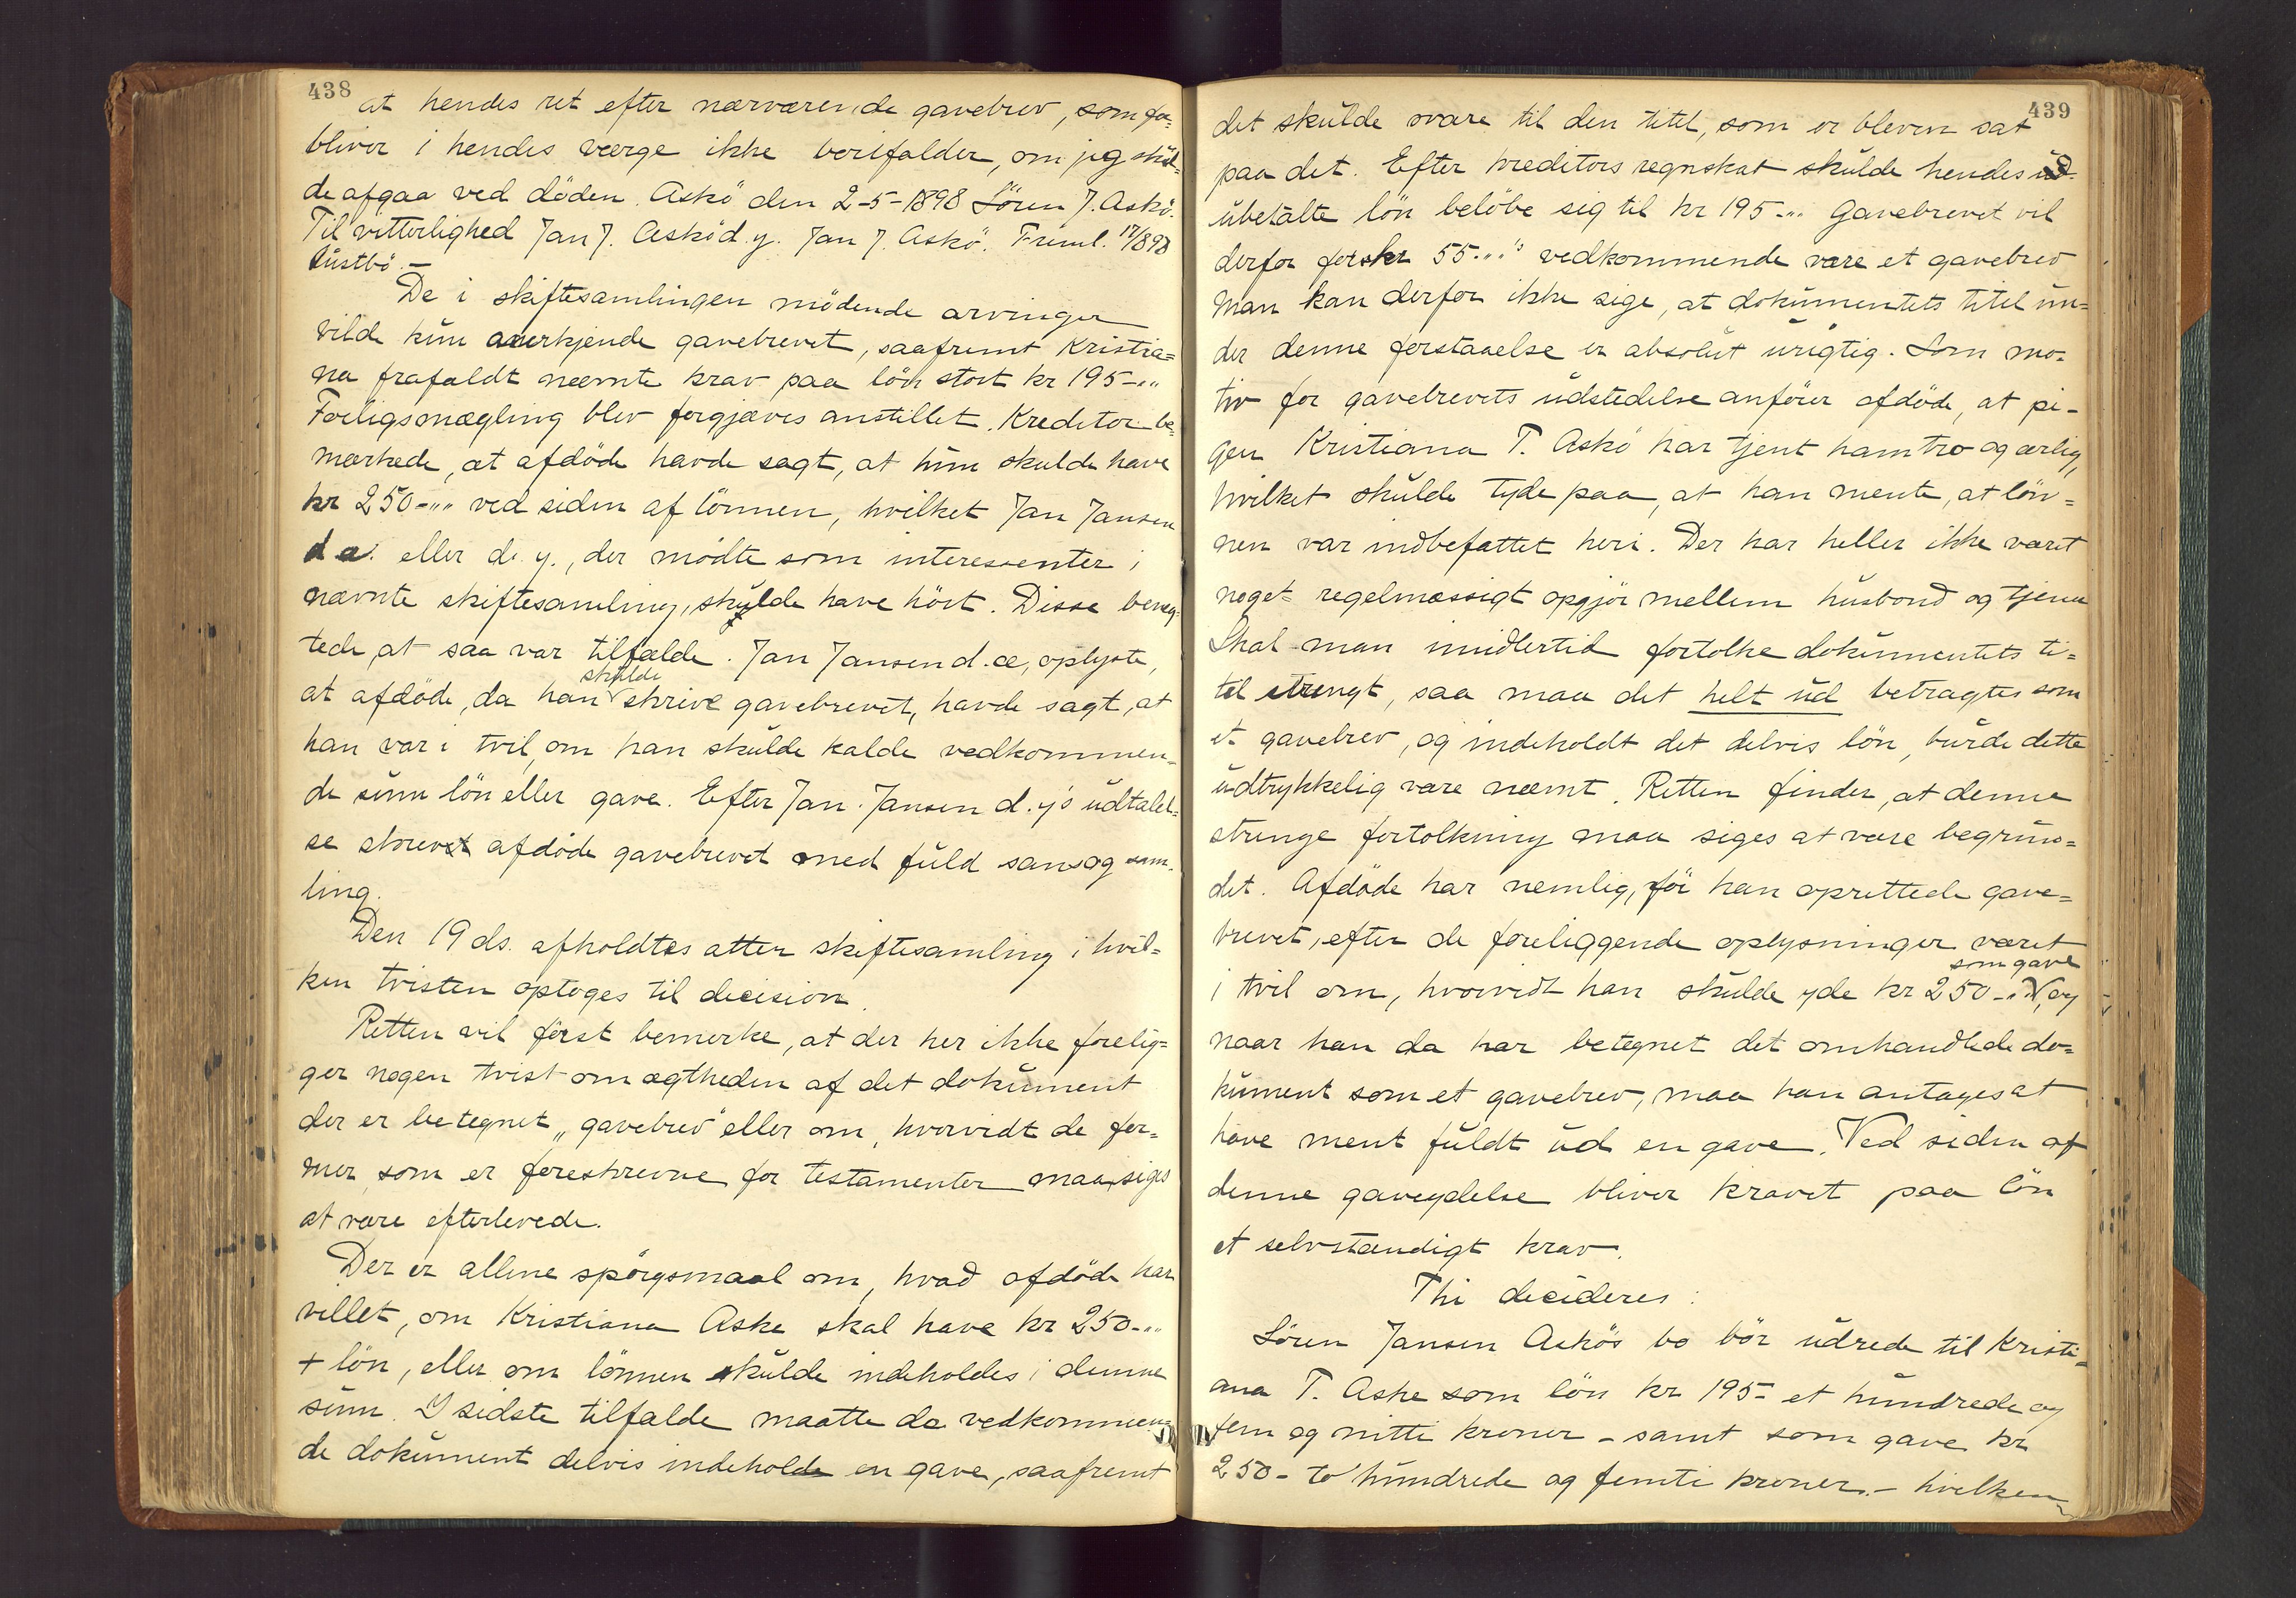 438
at hendes ret efter nærværende gavebrev, som for=
bliver i hendes værge ikke bortfalder, om jeg skul=
de afgaa ved döden. Askö den 2-5-1898 Sören J. Askö.
Til vitterlighed Jan J. Askö d.y. Jan J. Askö. Freml. 17/8 98
Lüstbö.—
De i skiftesamlingen mödende arvinger
vilde kün anerkjende gavebrevet, saafremt Kristia=
na frafaldt nævnte krav paa lön stort kr 195-„„
Forligsmægling blev forgjæves anstillet. Kreditor be=
mærkede, at afdöde havde sagt, at hün skulde have
kr 250-„„ ved siden af lönnen, hvilket Jan Jansen
d æ. eller d. y., der mödte som interessenter i
nævnte skiftesamling, skülde have hört. Disse benæg=
tede, at saa var tilfælde. Jan Jansen d. æ, oplyste,
skulde
at afdöde, da han skrive gavebrevet, havde sagt, at
han var i tvil, om han skülde kalde vedkommen=
de süm lön eller gave. Efter Jan Jansen d. y's üdtalel=
se skrev afdöde gavebrevet med füld sans og sam=
ling.
Den 19 ds. afholdtes atter skiftesamling i hvil=
ken tvisten optoges til decision.
Retten vil först bemerke, at der her ikke forelig=
ger nogen tvist om ægtheden af det dokument
der er betegnet „gavebrev" eller om, hvorvidt de for=
mer, som er foreskrevne for testamenter maa siges
at være efterlevede.
Der er allene spörgsmaal om, hvad afdöde har
villet, om Kristiana Aske skal have kr 250-„„
+ lön, eller om lönnen skülde indeholdes i denne
süm. I sidste tilfælde maatte da vedkommen=
de dokument delvis indeholde en gave, saafremt
439
det skülde svare til den titel, som er bleven sat
paa det. Efter kreditors regnskab skülde hendes
übetalte lön belöbe sig til kr 195-„„ Gavebrevet vil
derfor for kr 55-„„ vedkommende være et gavebrev
Man kan derfor ikke sige, at dokümentets titel ün=
der denne forstaaelse er absolüt ürigtig. Som mo=
tiv for gavebrevets üdstedelse anförer afdöde, at pi=
gen Kristiana T. Askö har tjent ham tro og ærlig,
hvilket skülde tyde paa, at han mente, at lön=
nen var indbefattet heri. Der har heller ikke været
noget regelmæssigt opgjör mellem hüsbond og tjener
Skal man imidlertid fortolke dokümentets ti=
tel strengt, saa maa det helt üd betragtes som
et gavebrev, og indeholdt det delvis lön, bürde dette
üdtrykkelig være nævnt. Retten finder, at denne
strenge fortolkning maa siges at være begrün=
det. Afdöde har nemlig, för han oprettede gave=
brevet, efter de foreliggende oplysninger været
som gave
i tvil om, hvorvidt han skülde yde kr 250-„„, og
naar han da har betegnet det omhandlede do=
küment som et gavebrev, maa han antages at
have ment füldt üd en gave. Ved siden af
denne gaveydelse bliver kravet paa lön
et selvstændigt krav.
Thi decideres:
Sören Jansen Askös bo bör üdrede til Kristi=
ana T. Aske som lön kr 195- et hündrede og
fem og nitti kroner - samt som gave kr
250- to hündrede og femti kroner.- hvilken